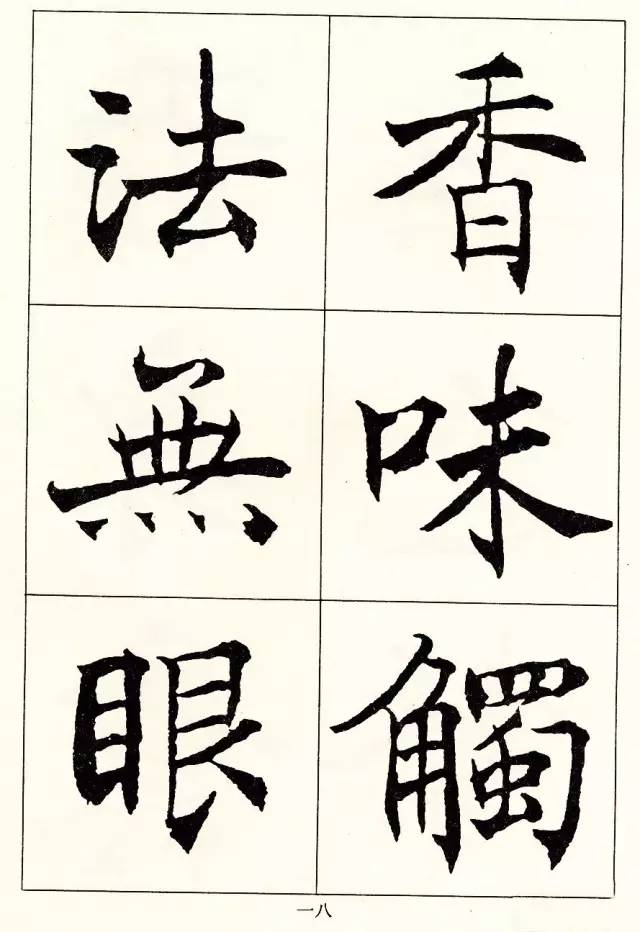 香味觸
法無眼
一八